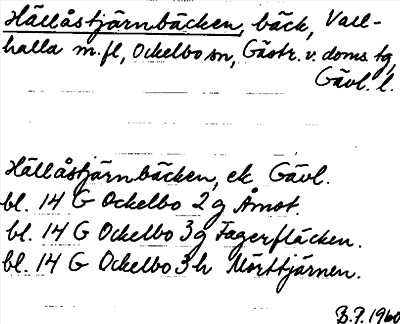 Hällåstjärnbäcken, bäck, Vall-
halla m.fl, Ockelbo sn, Gästr. v. doms. tg,
Gävl. l.
Hällåstjärnbäcken, ek Gävl.
bl. 14 G Ockelbo 2 g Åmot.
bl. 14 G Ockelbo 3 g Fagerfläcken.
bl. 14 G Ockelbo 3 h Mörttjärnen.
B.P. 1960